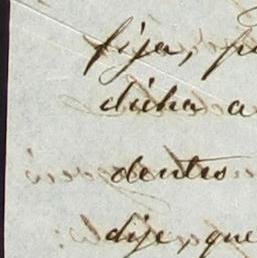 fija, p
dicha a
dentro
dije, que